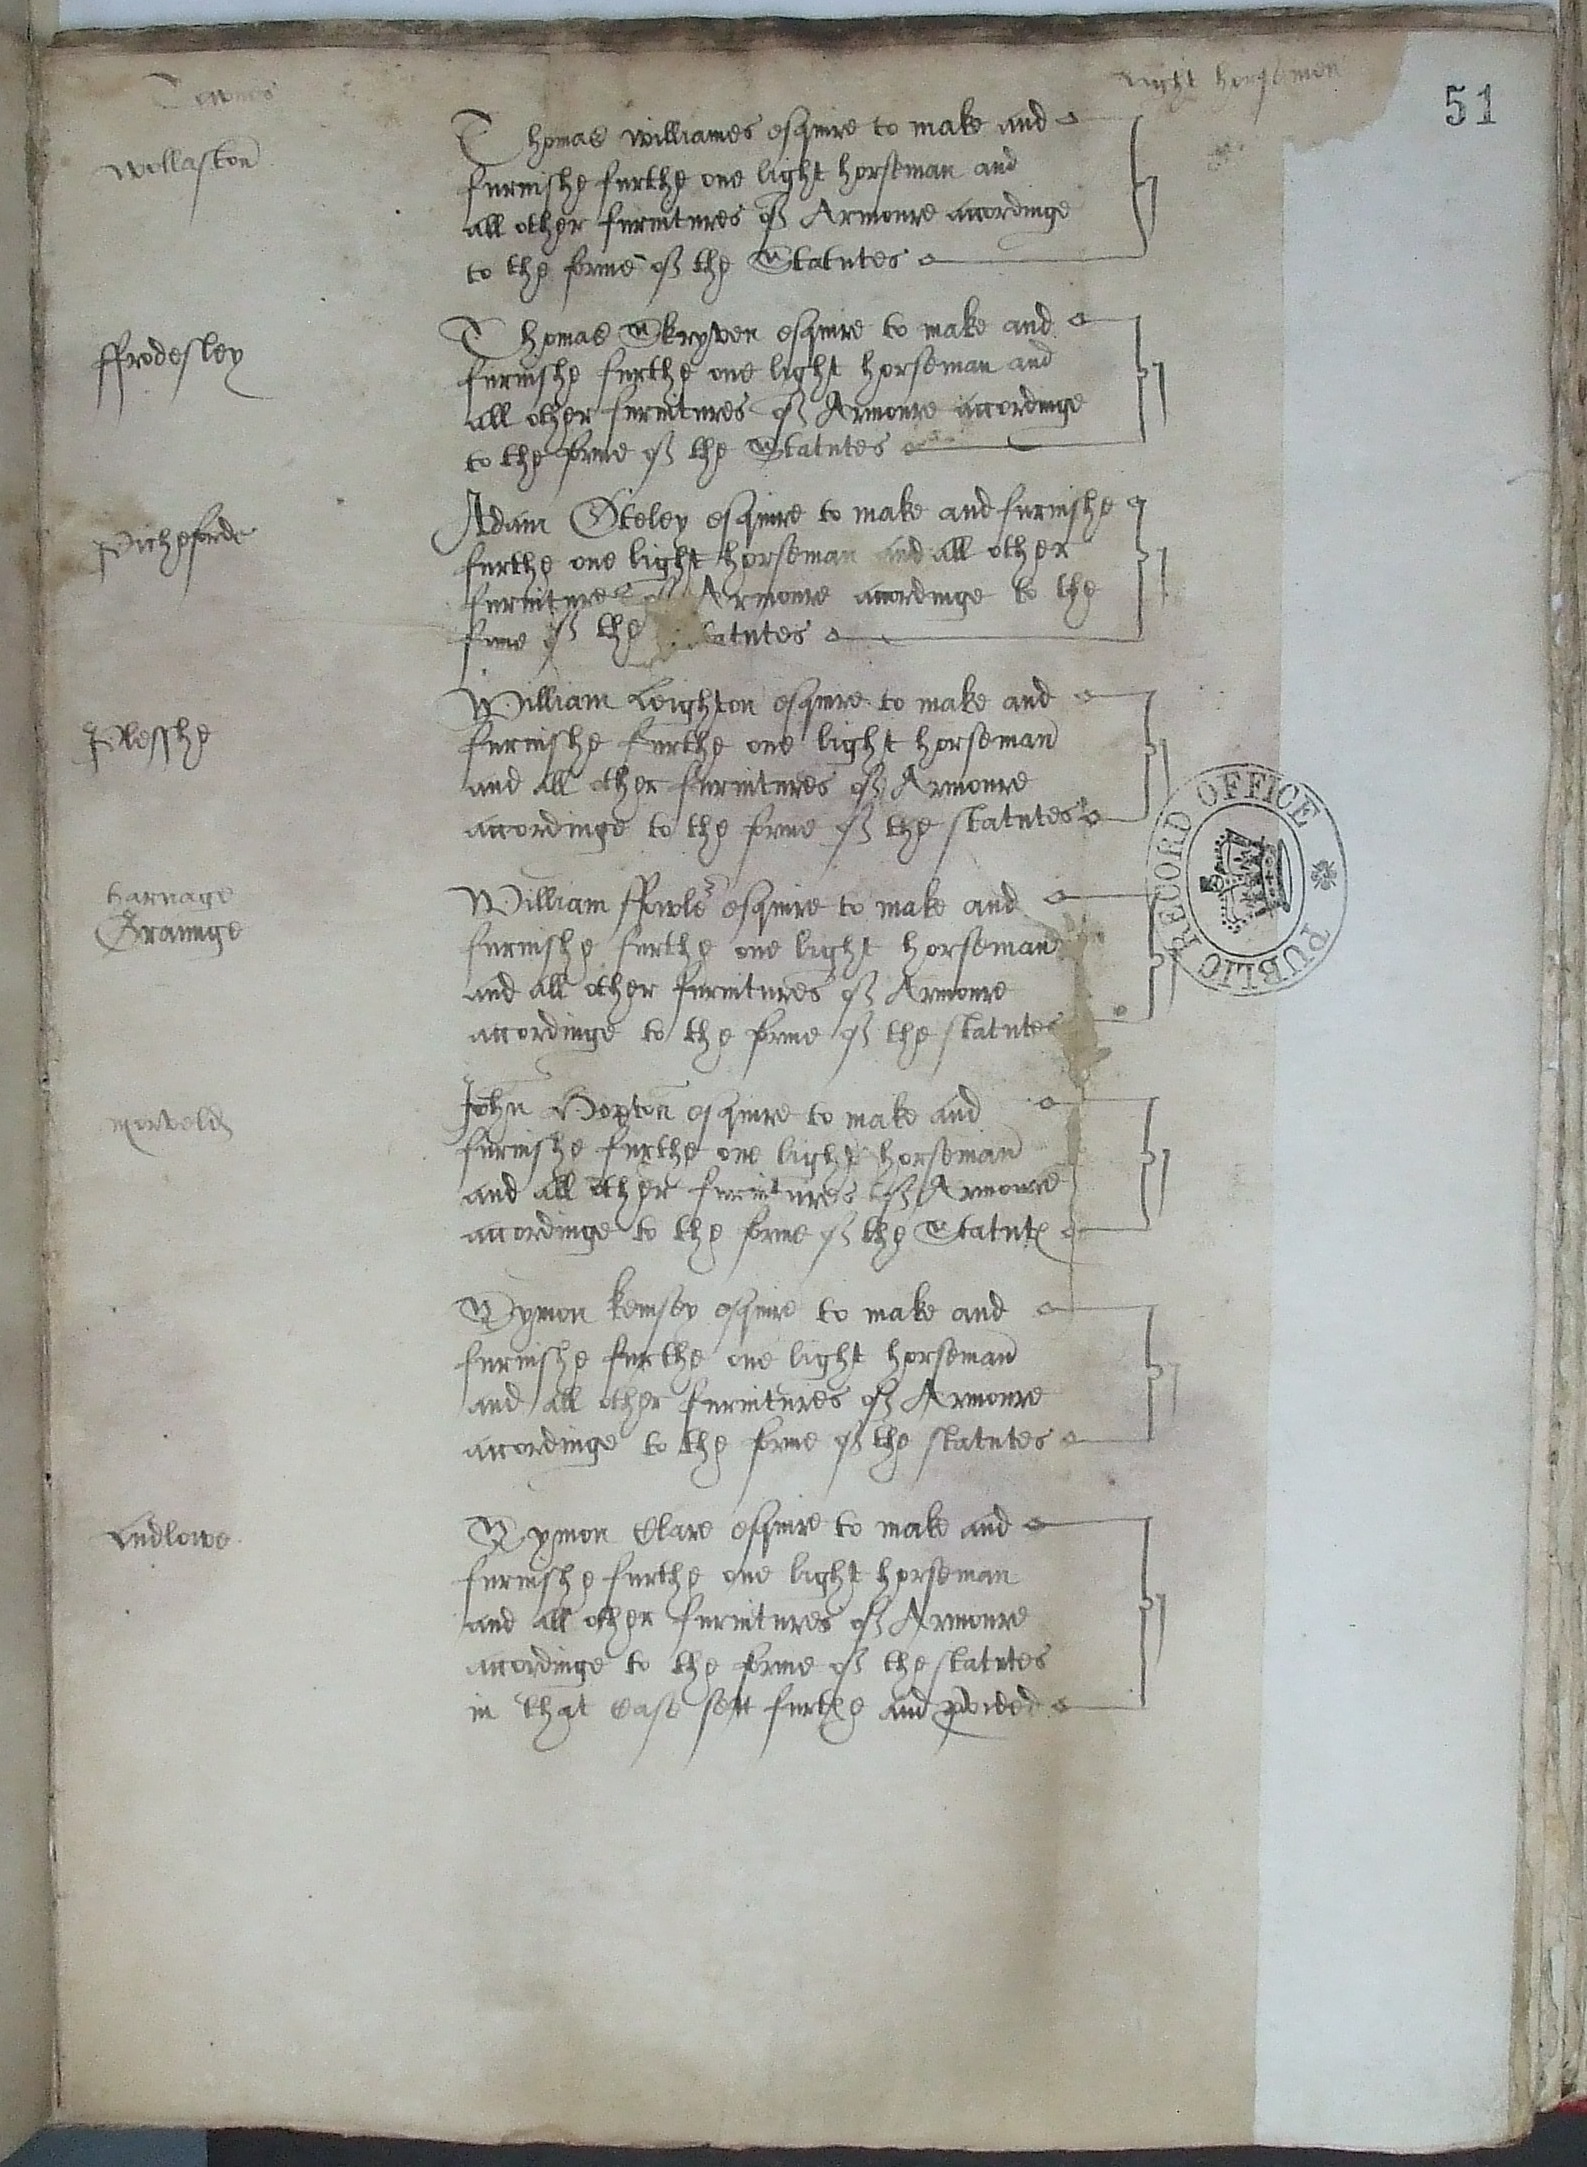 Townes
Light horsemen
51
Wollaston
Thomas Williames esquire to make and
furnishe furthe one light horseman and
all other furnitures of Armoure accordinge
to the forme of the Statutes
ffrodesley
Thomas Skryven esquire to make and
furnishe furthe one light horseman and
all other furnitures of Armoure accordinge
to the forme of the Statutes
j
Picheforde
Adam Oteley esquire to make and furnishe
furthe one light horseman and all other
furnitures of Armoure accordinge to the
forme of the Statutes
j
Plesshe
William Leighton esquire to make and
furnishe furthe one light horseman
and all other furnitures of Armoure
accordinge to the forme of the statutes
j
Harnage
Graunge
William ffowler esquire to make and
furnishe furthe one light horseman
and all other furnitures of Armoure
accordinge to the forme of the statutes
j
PUBLIC RECORD OFFICE
Morveld
John Hopton esquire to make and
furnishe furthe one light horseman
and all other furnitures of Armoure
accordinge to the forme of the Statutes
j
Symon Kemsey esquire to make and
furnishe furthe one light horseman
and all other furnitures of Armoure
accordinge to the forme of the statutes
j
Ludlowe
Symon Clare esquire to make and
furnishe furthe one light horseman
and all other furnitures of Armoure
accordinge to the forme of the statutes
in that Case sett furthe and pvided
j